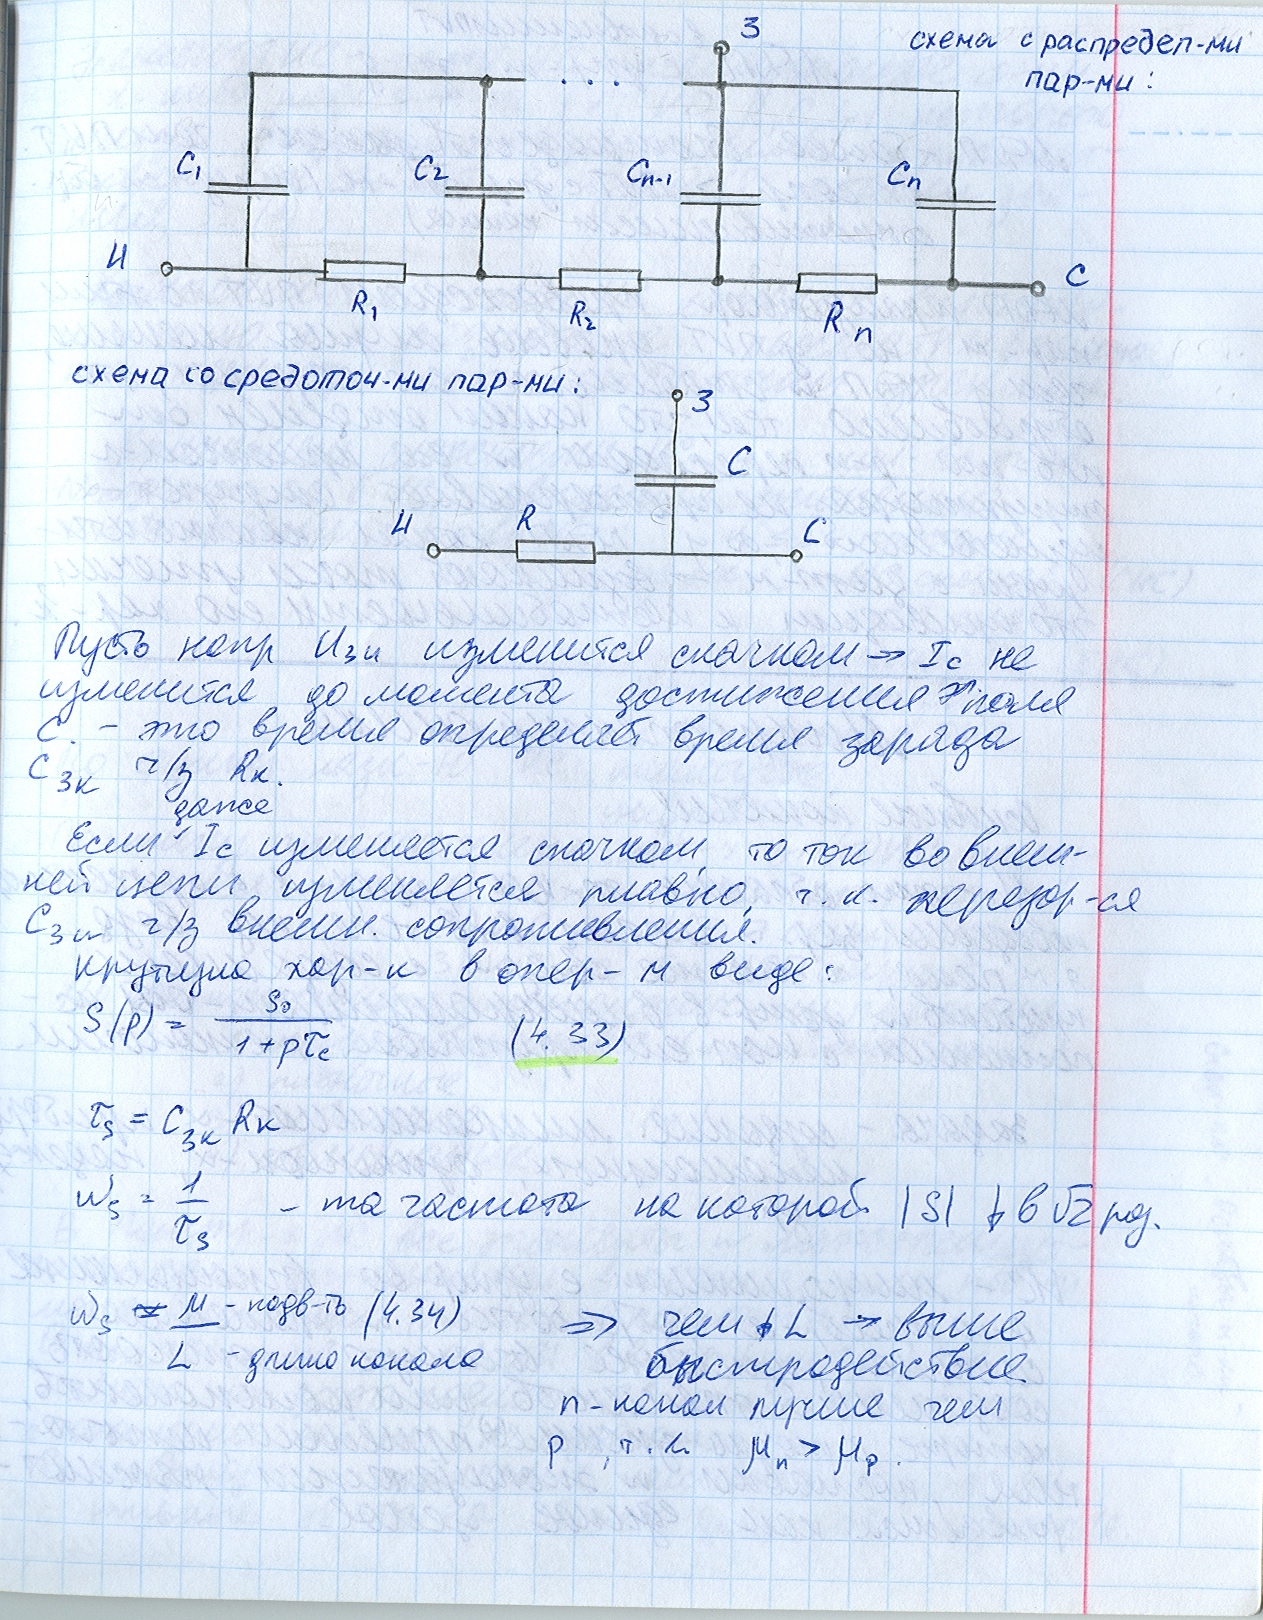 З
схема с распредел-ми
пар-ми:
C₁
C₂
Cₙ₋₁
Cₙ
И
R₁
R₂
Rₙ
С
схема со средоточ-ми пар-ми:
З
C
И
R
С
Пусть напр Uзи изменится скачком → Iс не
изменится до момента достижения поля
С. - это время определяет время заряда
Cзк ч/з Rк.
даже
Если Iс изменяется скачком, то ток во внеш-
ней цепи изменяется плавно, т.к. перезар-ся
Cзи ч/з внешн. сопротивления.
Крутизна хар-к в опер-м виде:
S(p) = S₀ / (1+pτс) (4.33)
τs = Cзк Rк
ωs = 1/τs - та частота на которой |S| ↓ в √2 раз.
ωs ≈ μ/L - подв-ть (4.34) ⇒ чем ↓ L → выше
- длина канала быстродействие
n-канал лучше чем
p, т.к. μₙ > μₚ.